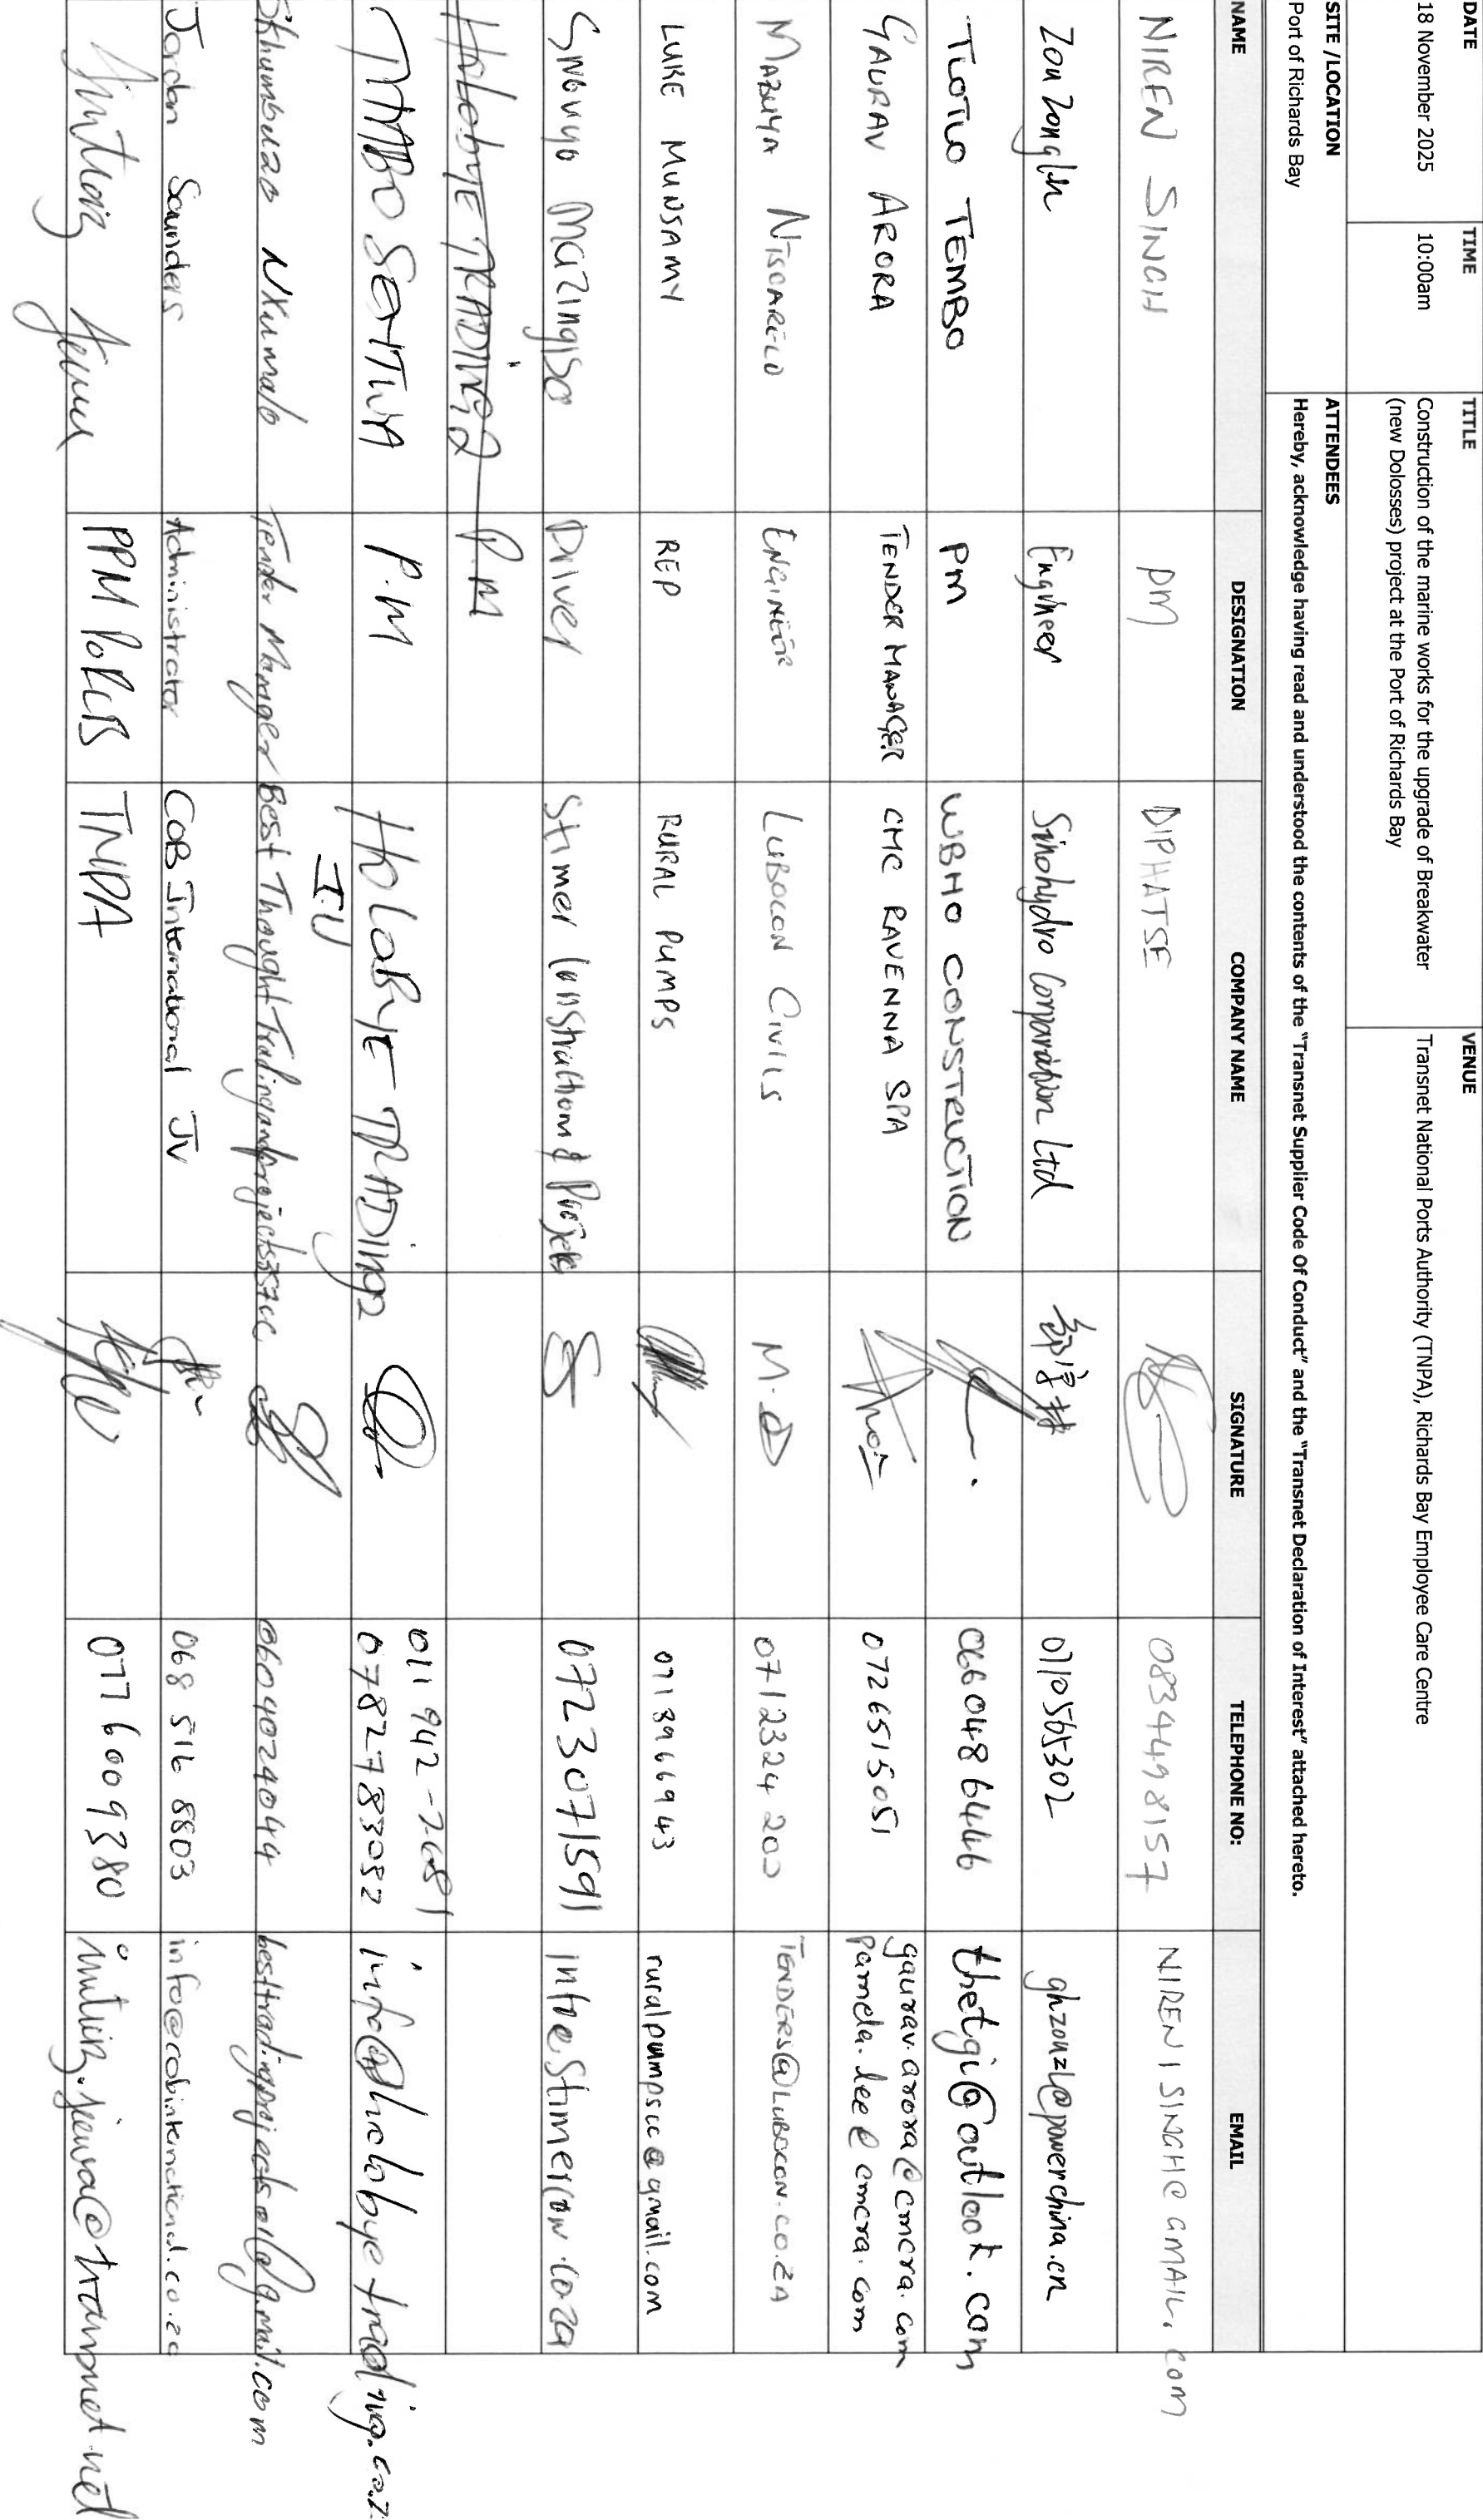 DATE TIME TITLE VENUE
18 November 2025 10:00am Construction of the marine works for the upgrade of Breakwater Transnet National Ports Authority (TNPA), Richards Bay Employee Care Centre
(new Dolosses) project at the Port of Richards Bay
SITE /LOCATION ATTENDEES
Port of Richards Bay Hereby, acknowledge having read and understood the contents of the "Transnet Supplier Code Of Conduct" and the "Transnet Declaration of Interest" attached hereto.
NAME DESIGNATION COMPANY NAME SIGNATURE TELEPHONE NO: EMAIL
NIREN SINGH PM DIPHATSE 0834498157 NIREN1SINGH@GMAIL.COM
Zou Zonglin Engineer Sinohydro Comparation Ltd 0710565302 ghzouzl@powerchina.cn
TLOTLO TEMBO PM WBHO CONSTRUCTION 0660486446 thetgi@outlook.com
GAURAV ARORA TENDER MANAGER CMC RAVENNA SPA 0726515051 gaurav.arora@cmcra.com
pamela.lee@cmcra.com
MABUYA ENGINEER LUBOCON CIVILS M. 0712324200 TENDERS@LUBOCON.CO.ZA
LUKE MUNSAMY REP RURAL PUMPS 0713966943 ruralpumpscc@gmail.com
Sinovuyo Mazingisa Driver Stimer Construction & Projects 0723071591
Holobye TRADING P.M
011 942-7681
THABO SEHTWA P.M HOLOBYE TRADING 0782783082 info@holobyetrading.co.z
Sikhumbuzo NXumalo Tender Manager Best Thought Tradingandprojects357cc 0604024044 besttradingprojects01@gmail.com
Jordan Saunders Administrator COB International JV 068 516 8803 info@cobinternational.co.za
TNPA 0776009380 @transnet.net